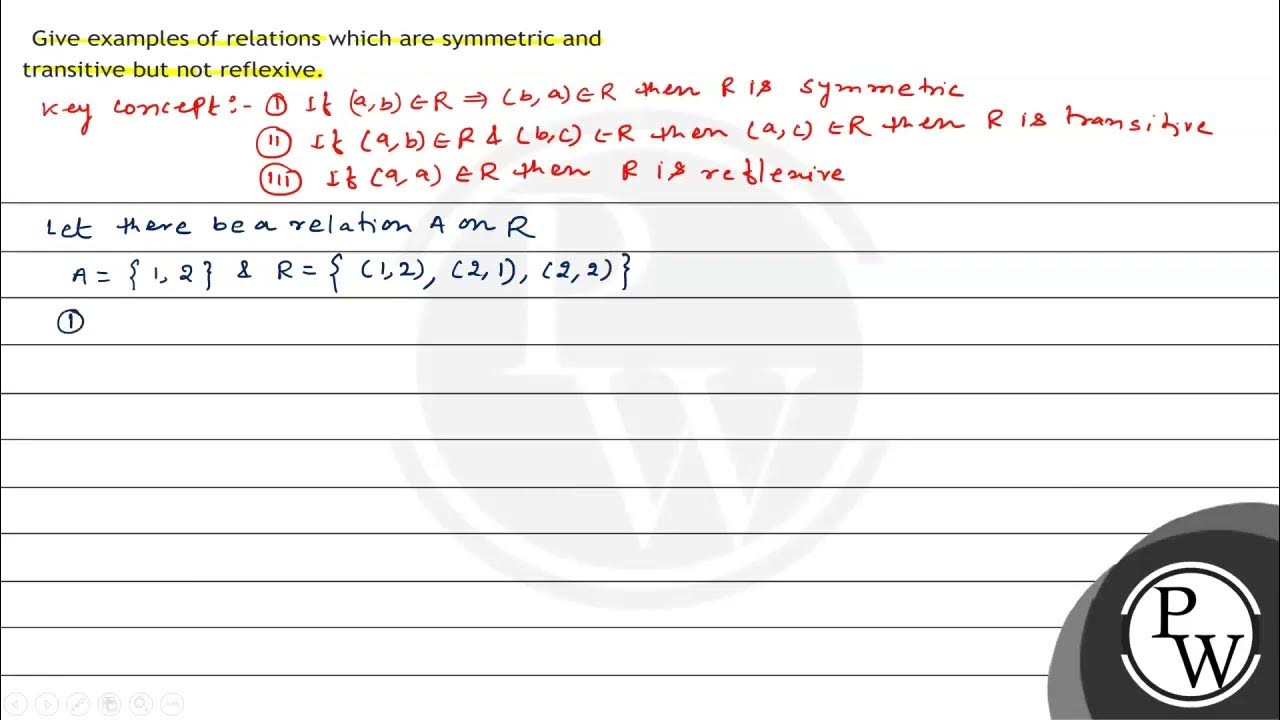 Give examples of relations which are symmetric and
transitive but not reflexive.
Key concept:- ① If (a,b) ∈ R ⇒ (b,a) ∈ R then R is symmetric
ⓘⓘ If (a,b) ∈ R & (b,c) ∈ R then (a,c) ∈ R then R is transitive
ⓘⓘⓘ If (a,a) ∈ R then R is reflexive
Let there be a relation A on R
A = { 1, 2 } & R = { (1,2), (2,1), (2,2) }
①
P
W
P
W